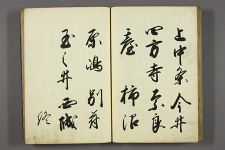 上中条 今井
四方寺 奈良
臺 柿沼
原嶋 別府
玉之井 西城
終